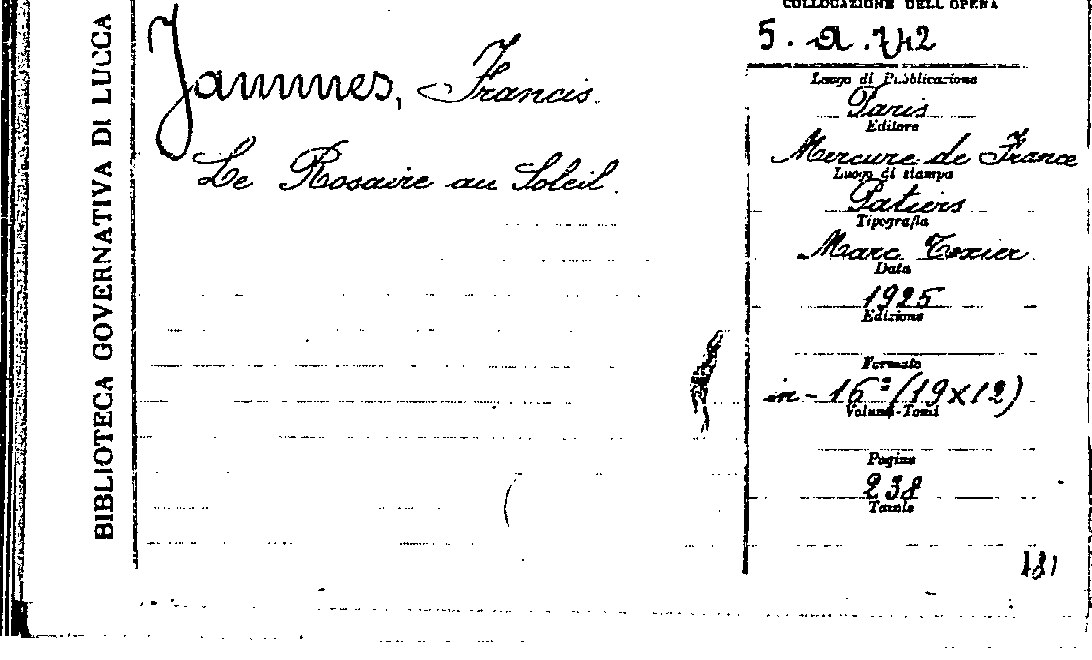 BIBLIOTECA GOVERNATIVA DI LUCCA
Jammes, Francis.
Le Rosaire au Soleil.
COLLOCAZIONE DELL'OPERA
Luogo di Pubblicazione
Paris
Editore
Mercure de France
Luogo di stampa
Poitiers
Tipografia
Marc Texier
Data
1925
Edizione
Formato
in-16° (19x12)
Volumi-Tomi
Pagine
238
Tavole